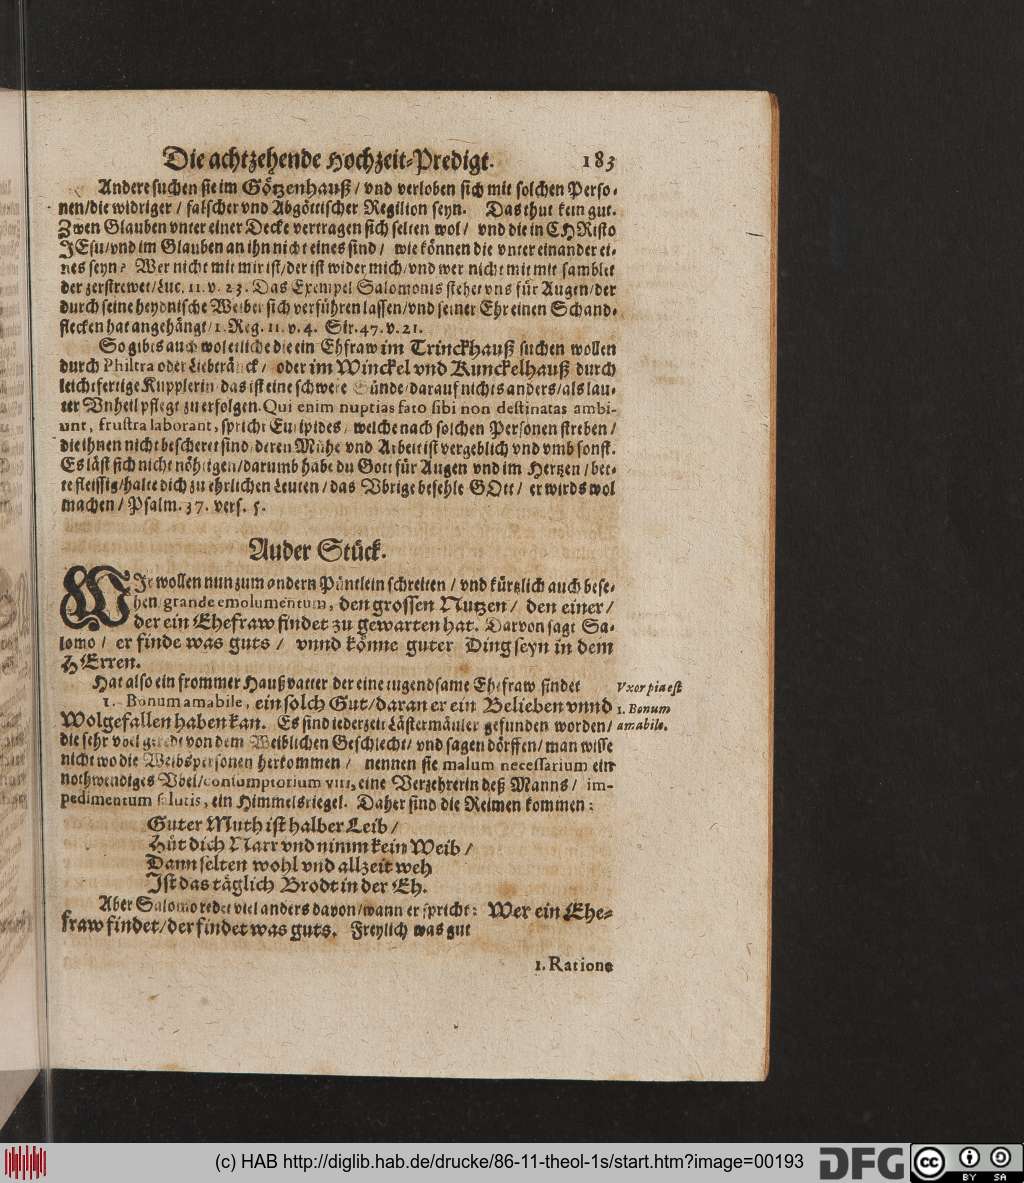 Die achtzehende Hochzeit-Predigt. 183
Andere suchen sie im Götzenhauß / vnd verloben sich mit solchen Perso-
nen/die widriger / falscher vnd Abgöttischer Regilion seyn. Das thut kein gut.
Zwen Glauben vnter einer Decke vertragen sich selten wol / vnd die in CHRisto
JEsu/vnd im Glauben an ihn nicht eines sind / wie können die vnter einander ei-
nes seyn? Wer nicht mit mir ist/der ist wider mich/vnd wer nicht mit mir samblet
der zerstrewet/Luc. 11. v. 23. Das Exempel Salomonis stehet vns für Augen/der
durch seine heydnische Weiber sich verführen lassen/vnd seiner Ehr einen Schand-
flecken hat angehängt/1. Reg. 11. v. 4. Sir. 47. v. 21.
So gibts auch wol etliche die ein Ehfraw im Trinckhauß suchen wollen
durch Philtra oder Liebtränck / oder im Winckel vnd Kunckelhauß durch
leichtfertige Kupplerin/das ist eine schwere Sünde/darauf nichts anders/als lau-
ter Vnheil pflegt zu erfolgen. Qui enim nuptias fato sibi non destinatas ambi-
unt, frustra laborant, spricht Euripides, welche nach solchen Personen streben /
die ihnen nicht bescheret sind/deren Mühe vnd Arbeit ist vergeblich vnd vmb sonst.
Es läst sich nicht nöhtigen/darumb habe du Gott für Augen vnd im Hertzen / bet-
te fleissig/halte dich zu ehrlichen Leuten / das Vbrige befehle GOtt / er wirds wol
machen / Psalm. 37. vers. 5.
Ander Stück.
WIr wollen nun zum andern Püntlein schreiten / vnd kürtzlich auch bese-
hen grande emolumentum, den grossen Nutzen / den einer /
der ein Ehefraw findet zu gewarten hat. Darvon sagt Sa-
lomo / er finde was guts / vnnd könne guter Ding seyn in dem
HErren.
Hat also ein frommer Haußvatter der eine tugendsame Ehefraw findet
Vxor pia est
1. Bonum amabile, ein solch Gut/daran er ein Belieben vnnd
1. Bonum
Wolgefallen haben kan. Es sind iederzeit Lästermäuler gefunden worden/
amabile.
die sehr vbel geredt von dem Weiblichen Geschlecht/ vnd sagen dörffen/man wisse
nicht wo die Weibspersonen herkommen / nennen sie malum necessarium ein
nothwendiges Vbel/consumptorium viri, eine Verzehrerin deß Manns / im-
pedimentum salutis, ein Himmelsriegel. Daher sind die Reimen kommen:
Guter Muth ist halber Leib /
Hüt dich Narr vnd nimm kein Weib /
Dann selten wohl vnd allzeit weh
Ist das täglich Brodt in der Eh.
Aber Salomo redet viel anders davon/wann er spricht: Wer ein Ehe-
fraw findet/der findet was guts. Freylich was gut
1. Ratione
(c) HAB http://diglib.hab.de/drucke/86-11-theol-1s/start.htm?image=00193
DFG
cc BY SA